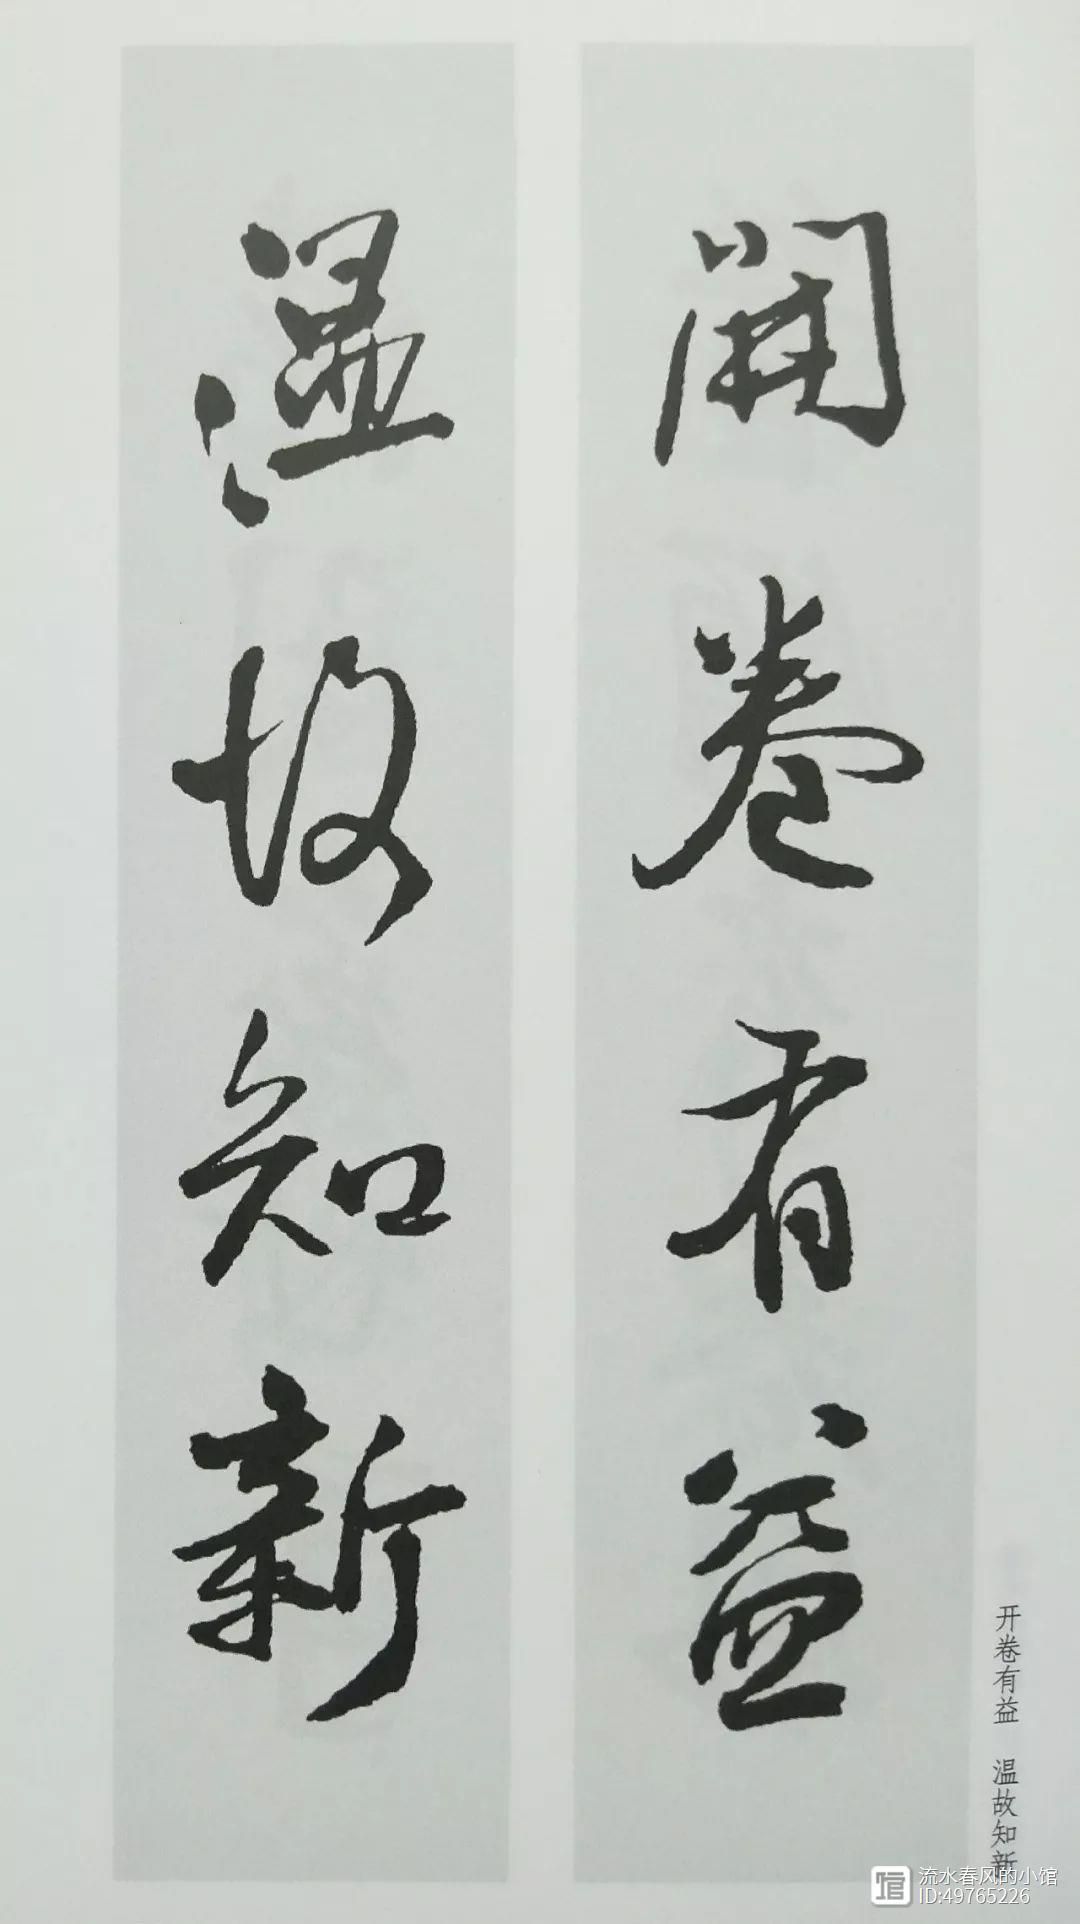 開卷有益
温故知新
开卷有益 温故知新
流水春风的小馆
ID:49765226